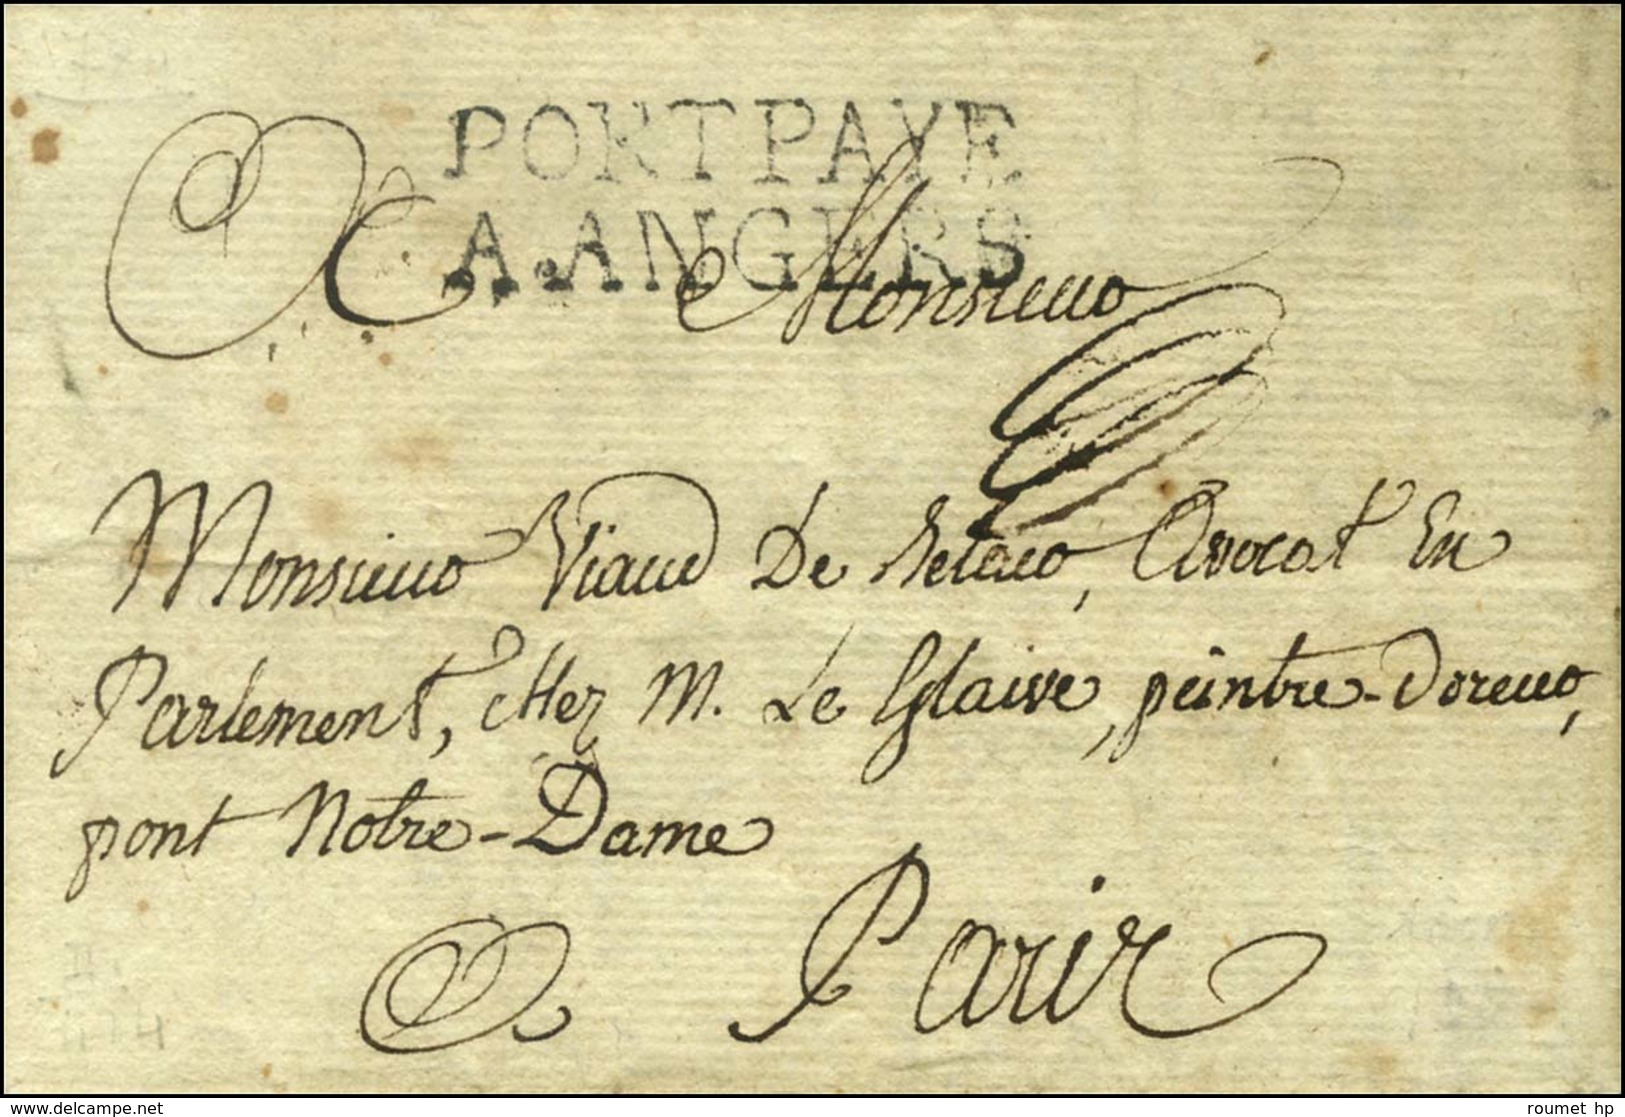 PORT PAYE
A. ANGERS
A Monsieur
Monsieur Viaud De Belair, Avocat En
Parlement, chez M. Le Glaive, peintre-Doreur,
pont Notre-Dame
A Paris
delcampe.net
roumet hp